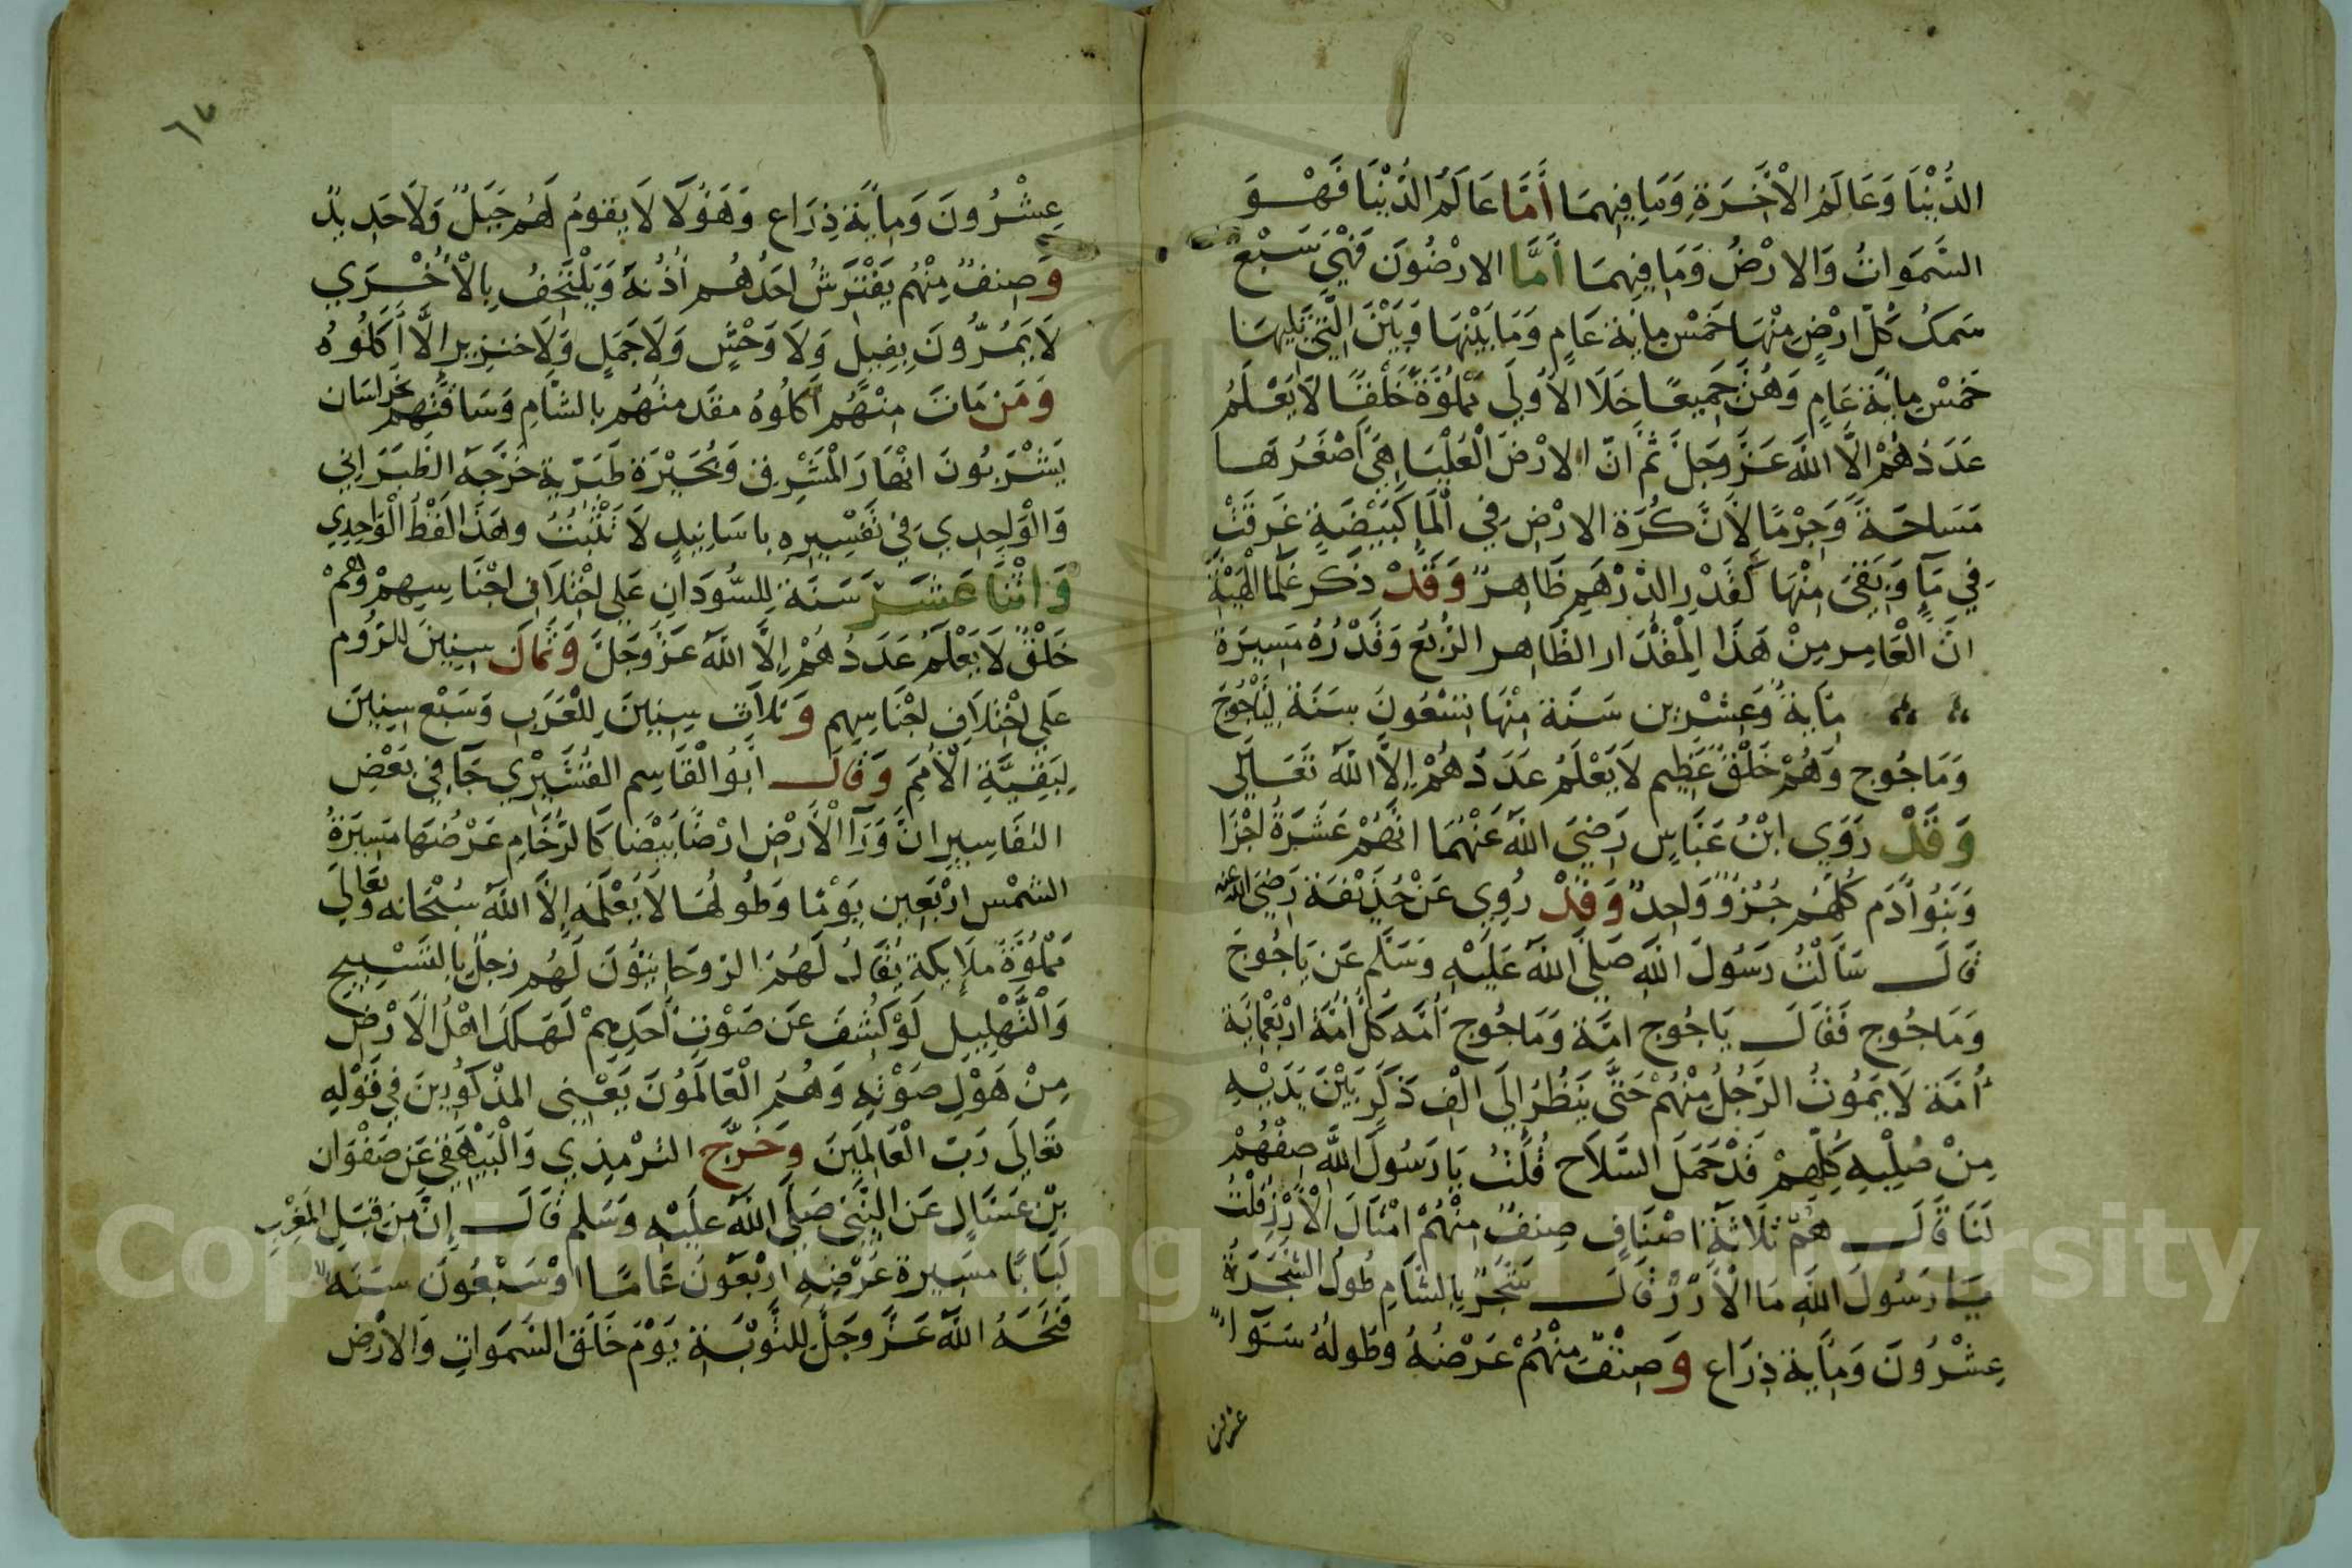 الدُّنْيَا وَعَالَمُ الْأَخِرَةِ وَمَا فِيهِمَا أَمَّا عَالَمُ الدُّنْيَا فَهْوَ
السَّمَوَاتُ وَالارْضُ وَمَا فِيهِمَا أَمَّا الارْضُونَ فَهْيَ سَبْعٌ
سَمكُ كُلّ ارْضٍ مِنْهَا خَمْسُ مِائَةِ عَامٍ وَمَا بَيْنَهَا وَبَيْنَ الَّتِي تَلِيهَا
خَمْسُ مِائَة عَامٍ وَهُنَّ جَمِيعًا خَلَا الاُولَى مَمْلُوَّةٌ خَلْقًا لَا يَعْلَمُ
عَدَدَهُمْ الَّا اللَّه عَزَّ وَجَلَّ ثُمَّ انّ الارْضَ الْعُلْيَا هِيَ أَصْغَرُهَا
مَسَاحَةً وَجِرْمًا لِأَنَّ كُرَةَ الارْضِ فِي الْمَا كَبَيْضَةٍ غَرِقَتْ
فِي مَآءٍ وَبَقِيَ مِنْهَا كَقَدْرِ الدِّرْهَمِ ظَاهِرٌ وَقَدْ ذَكَر عُلَمَا الْهَيْئَة
انَّ الْعَامِر مِنْ هَذَا الْمِقْدَار الظَّاهِر الرُّبُعُ وَقَدْرُهُ مَسِيرَةُ
مِايَةٌ وَعِشْرِين سَنَة مِنْهَا تِسْعُونَ سَنَةً لِيَاجُوجَ
وَمَاجُوج وَهُمْ خَلْقٌ عَظِيم لَا يَعْلَمُ عَدَدَهُمْ إِلَّا اللَّه تَعَالَى
وَقَدْ رَوَى ابْنُ عَبَّاسٍ رَضِيَ اللَّه عَنْهُمَا انَّهُمْ عَشَرَةُ اجْزَا
وَبَنُوا آدَم كُلّهُم جُزْؤٌ وَاحِدٌ وَقَدْ رُوِي عَنْ حُذَيْفَة رَضِيَ اللَّه عنه
قَالَ سَأَلْتُ رَسُولَ اللَّهِ صَلَّى اللَّهُ عَلَيْهِ وَسَلَّمَ عَن يَاجُوجَ
وَمَاجُوج فَقَالَ يَاجُوج امَّة وَمَاجُوج أمَّه كُلّ أمَّة ارْبَعُمايَة
أُمَّة لَا يَمُوتُ الرَّجُلُ مِنْهُمْ حَتَّى يَنظُرَ إلَى الْف ذَكَرٍ بَيْنَ يَدَيْهِ
مِنْ صُلْبِهِ كُلّهِمْ قَدْ حَمَلَ السِّلَاح قُلْتُ يَا رَسُولَ اللَّهِ صِفْهُمْ
لَنَا قَالَ هُمْ ثَلَاثَة اصْنَافٍ صِنفٌ مِنْهُمْ امْثَالَ الْأَرْزِ قُلْتُ
يَا رَسُولَ اللَّهِ مَا الْأَرْزُ قَالَ شَجَرٌ بِالشَّامِ طُولُ الشَّجَرَة
عِشْرُونَ وَمِأيَة ذِرَاع وَصِنْفٌ مِنْهُمْ عَرْضُهُ وَطُولُهُ سَوَآءٌ
عشرون
٦٧
عِشْرُونَ وَمِائَة ذِرَاع وَهَؤُلَا لَا يقومُ لَهُم جَبَلٌ وَلَا حَدِيدٌ
وَصِنفٌ مِنْهُم يَفْتَرِشُ احَدُهُم أُذُنَهُ وَيَلْتَحِفُ بِالْأُخْرَي
لَا يَمُرُّونَ بِفِيلٍ وَلَا وَحْشٍ وَلَا جَمَلٍ وَلَا خنزِيرٍ إلَّا أَكَلُوهُ
وَمَن مَاتَ مِنْهُم أكَلُوهُ مقَدمتُهُم بالشَّامِ وَسَاقَتُهم بخراسَان
يَشْرَبُونَ انْهَارَ الْمَشْرِق وَبُحَيْرَة طَبَرِيَة خَرَّجَهُ الطَّبَرَانِي
وَالْوَاحِدِي فِي تَفْسِيرِهِ بِاسَانِيدٍ لَا تَثْبُتُ وهَذَا لَفْظُ الْوَاحِدِي
وَاثْنَا عَشَرَ سَنَة لِلسُّودَانِ عَلى اخْتِلَافِ اجْنَاسِهِمْ وَهُمْ
خَلْقٌ لَا يَعْلَمُ عَدَدُهُمْ إِلَّا اللَّهَ عَزَّ وَجَلَّ وَثَمَان سِنِينَ للرُّوم
عَلَي اخْتِلَافِ اجْنَاسِهِم وَثَلَاث سِنِينَ لِلْعَرَبِ وَسَبْع سِنِينَ
لِبَقِيَّةِ الْأُمَمِ وَقَالَ ابُو الْقَاسِم الْقُشَيْرِي جَآ فِي بَعْضِ
التفَاسِيرِ انَّ وَرَآ الْأَرْضِ ارْضًا بَيْضَا كَالرُّخَامِ عَرْضُهَا مَسِيرَةُ
الشمْسِ ارْبَعِين يَوْمًا وَطُولُهَا لَا يَعْلَمه إِلَّا اللَّهُ سُبْحَانه وَتَعَالَى
مَمْلُوَّةٌ مَلَايِكَة يُقَالُ لَهُمْ الرُّوحَانِيُّونَ لَهُم زَجَلٌ بِالتَّسْبِيحِ
وَالتَّهْلِيلِ لَوْ كُشِفَ عَن صَوْتِ أَحَدِهِمْ لَهَلَكَ اهْلُ الْأَرْضِ
مِنْ هَوْلِ صَوْتِهِ وَهُمُ الْعَالَمُونَ يَعْنِي المَذْكُورِينَ فِي قَوْلِهِ
تَعَالَى رَبّ الْعَالَمِينَ وَخَرَّجَ التِّرْمِذِي وَالْبَيْهَقِي عَن صَفْوَان
بْنِ عَسَّالٍ عَن النَّبِيِّ صَلَّى اللَّه عَلَيْهِ وَسَلم قَالَ إِنَّ مِنْ قِبَلِ الْمَغْرِبِ
لَبَابًا مَسِيرة عَرْضِهِ ارْبَعُونَ عَامًا اوْ سَبْعُونَ سَنَه
فَتَحَهُ اللَّهُ عَزَّ وَجَلَّ لِلتَّوْبَةِ يَوْمَ خَلَقَ السَّمَوَاتِ وَالارْضِ
Copyright © King Saud University